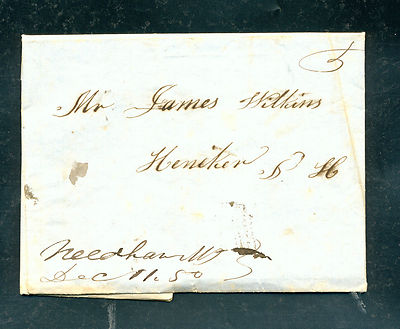 5
Mr James Wilkins
Heniker N H
Needham Ms
Dec 11. 50